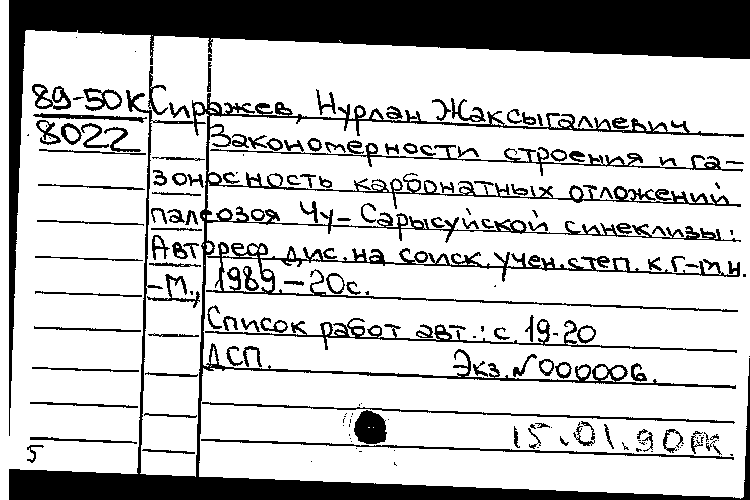 89-50К Сиражев, Нурлан Жаксыгалиевич
8022 Закономерности строения и га-
зоносность карбонатных отложений
палеозоя Чу-Сарысуйской синеклизы:
Автореф. дис. на соиск. учен. степ. к.г.-м.н.
-М., 1989.-20с.
Список работ авт.: с. 19-20
ДСП. Экз. №000006.
15.01.90РК
5